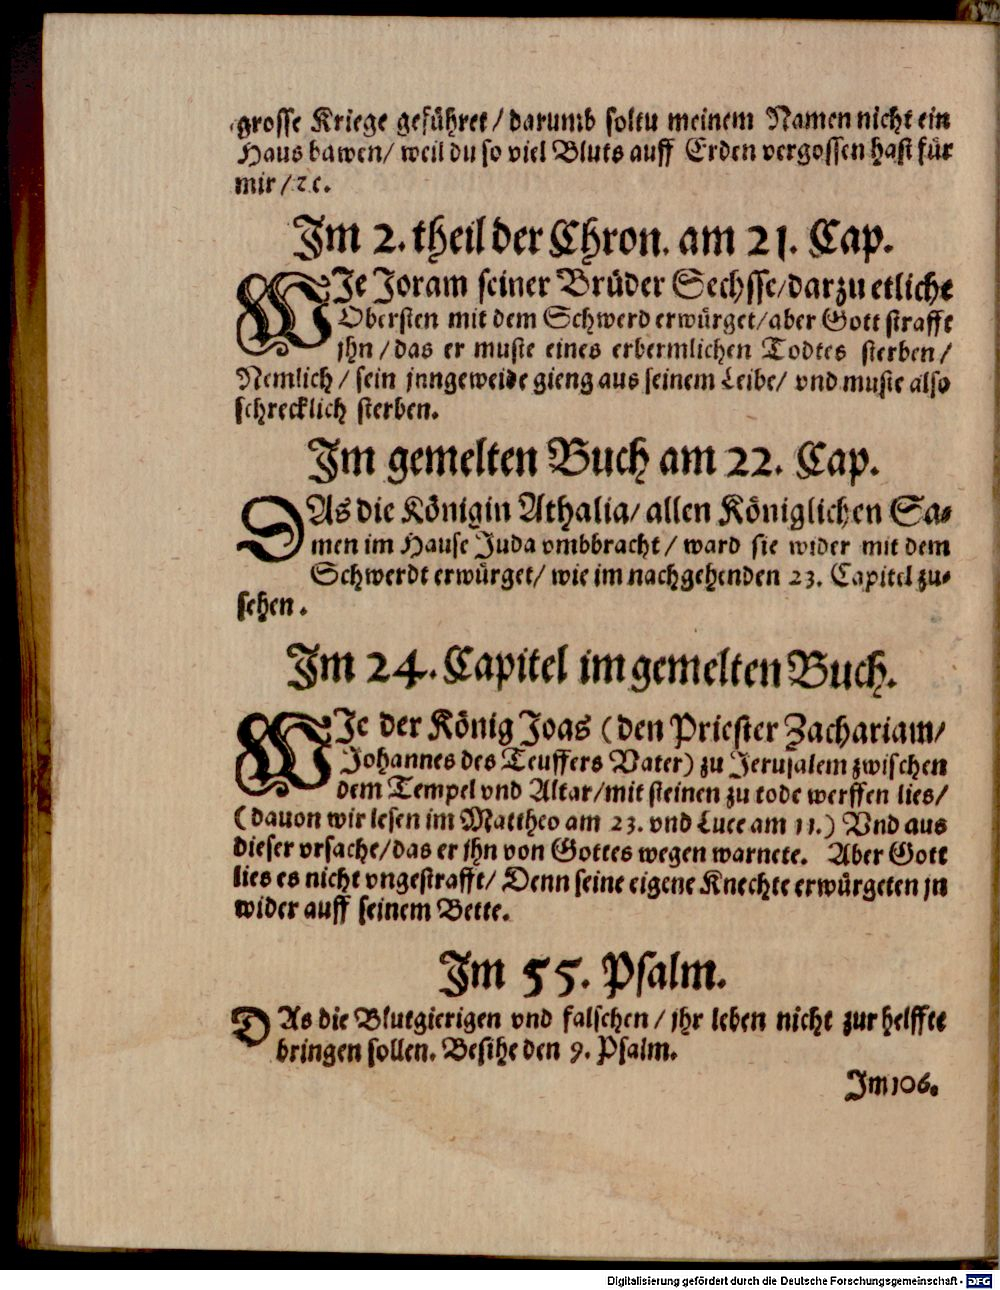 grosse Kriege geführet / darumb soltu meinem Namen nicht ein
Haus bawen / weil du so viel Bluts auff Erden vergossen hast für
mir / ꝛc.
Im 2. theil der Chron. am 21. Cap.
WIe Joram seiner Brüder Sechsse / darzu etliche
Obersten mit dem Schwerd erwürget / aber Gott strafft
jhn / das er muste eines erbermlichen Todtes sterben /
Nemlich / sein jnngeweide gieng aus seinem Leibe / vnd muste also
schrecklich sterben.
Im gemelten Buch am 22. Cap.
DAs die Königin Athalia / allen Königlichen Sa-
men im Hause Juda vmbbracht / ward sie wider mit dem
Schwerdt erwürget / wie im nachgehenden 23. Capitel zu-
sehen.
Im 24. Capitel im gemelten Buch.
WIe der König Joas (den Priester Zachariam /
Johannes des Teuffers Vater) zu Jerusalem zwischen
dem Tempel vnd Altar / mit steinen zu tode werffen lies /
(dauon wir lesen im Mattheo am 23. vnd Luce am 11.) Vnd aus
dieser vrsache / das er jhn von Gottes wegen warnete. Aber Gott
lies es nicht vngestrafft / Denn seine eigene Knechte erwürgeten jn
wider auff seinem Bette.
Im 55. Psalm.
DAs die Blutgierigen vnd falschen / jhr leben nicht zur helffte
bringen sollen. Besihe den 9. Psalm.
Im 106.
Digitalisierung gefördert durch die Deutsche Forschungsgemeinschaft - DFG